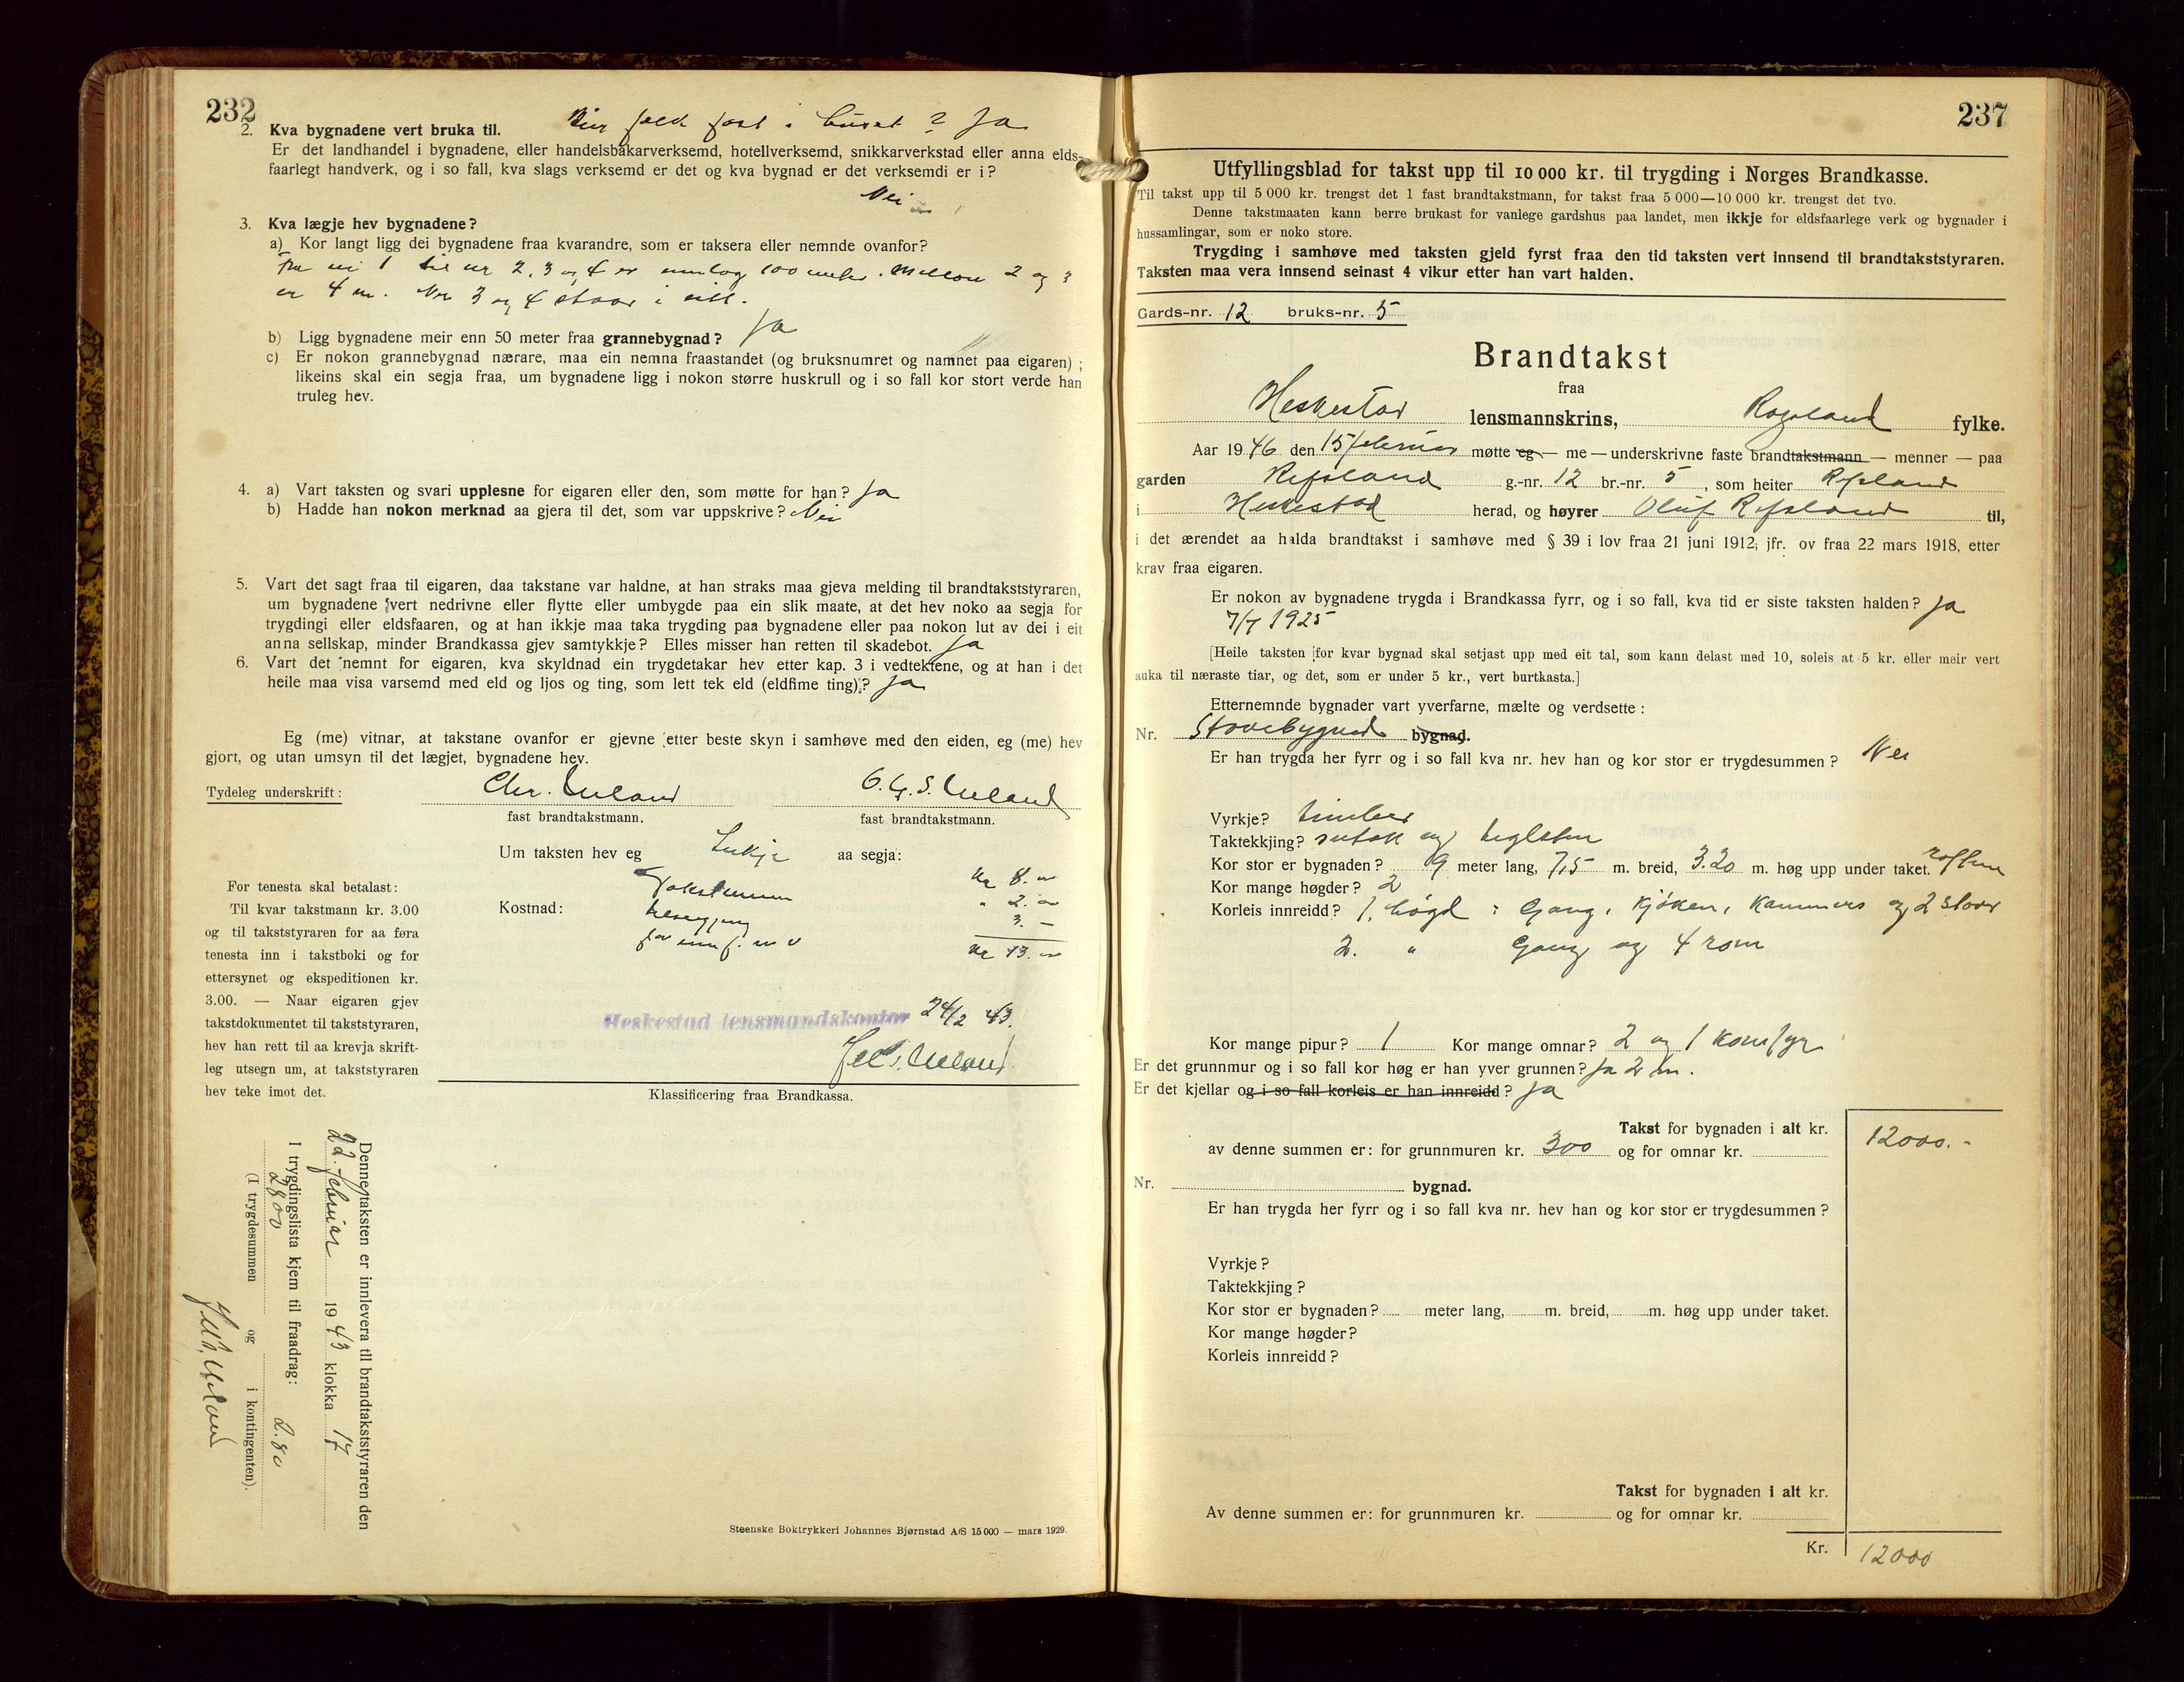 232
2. Kva bygnadene vert bruka til. Bur folk fast i huset? Ja
Er det landhandel i bygnadene, eller handelsbakarverksemd, hotellverksemd, snikkarverkstad eller anna elds-
faarlegt handverk, og i so fall, kva slags verksemd er det og kva bygnad er det verksemdi er i?
Nei
3. Kva lægje hev bygnadene?
a) Kor langt ligg dei bygnadene fraa kvarandre, som er taksera eller nemnde ovanfor?
Fra nr 1 til nr 2, 3 og 4 er umlag 100 meter. Mellom 2 og 3
er 4 m. Nr 3 og 4 staar i eitt.
b) Ligg bygnadene meir enn 50 meter fraa grannebygnad? Ja
c) Er nokon grannebygnad nærare, maa ein nemna fraastandet (og bruksnumret og namnet paa eigaren);
likeins skal ein segja fraa, um bygnadene ligg i nokon større huskrull og i so fall kor stort verde han
truleg hev.
4. a) Vart taksten og svari upplesne for eigaren eller den, som møtte for han? Ja
b) Hadde han nokon merknad aa gjera til det, som var uppskrive? Nei
5. Vart det sagt fraa til eigaren, daa takstane var haldne, at han straks maa gjeva melding til brandtakststyraren,
um bygnadene vert nedrivne eller flytte eller umbygde paa ein slik maate, at det hev noko aa segja for
trygdingi eller eldsfaaren, og at han ikkje maa taka trygding paa bygnadene eller paa nokon lut av dei i eit
anna sellskap, minder Brandkassa gjev samtykkje? Elles misser han retten til skadebot. Ja
6. Vart det nemnt for eigaren, kva skyldnad ein trygdetakar hev etter kap. 3 i vedtektene, og at han i det
heile maa visa varsemd med eld og ljos og ting, som lett tek eld (eldfime ting)? Ja
Eg (me) vitnar, at takstane ovanfor er gjevne etter beste skyn i samhøve med den eiden, eg (me) hev
gjort, og utan umsyn til det lægjet, bygnadene hev.
Tydeleg underskrift: Chr. Ueland O. G. S. Ueland
fast brandtakstmann. fast brandtakstmann.
Um taksten hev eg Inkje aa segja:
Kostnad: Takstmenn Kr 8.00
" 2.00
3. -
Kr 13.00
For tenesta skal betalast:
Til kvar takstmann kr. 3.00
og til takststyraren for aa føra
tenesta inn i takstboki og for
ettersynet og ekspeditionen kr.
3.00. — Naar eigaren gjev
takstdokumentet til takststyraren,
hev han rett til aa krevja skrift-
leg utsegn um, at takststyraren
hev teke imot det.
Heskestad lensmandskontor 24/2 43.
Ueland
Klassificering fraa Brandkassa.
Denne taksten er innlevera til brandtakststyraren den
22. februar 1943 klokka 17
I trygdingslista kjem til fraadrag:
2800 2.80
(I trygdesummen og i kontingenten).
Ueland
Steenske Boktrykkeri Johannes Bjørnstad A/S 15 000 — mars 1929.
237
Utfyllingsblad for takst upp til 10 000 kr. til trygding i Norges Brandkasse.
Til takst upp til 5 000 kr. trengst det 1 fast brandtakstmann, for takst fraa 5 000—10 000 kr. trengst det tvo.
Denne takstmaaten kann berre brukast for vanlege gardshus paa landet, men ikkje for eldsfaarlege verk og bygnader i
hussamlingar, som er noko store.
Trygding i samhøve med taksten gjeld fyrst fraa den tid taksten vert innsend til brandtakststyraren.
Taksten maa vera innsend seinast 4 vikur etter han vart halden.
Gards-nr. 12 bruks-nr. 5
Brandtakst
fraa
Heskestad lensmannskrins, Rogaland fylke.
Aar 1946 den 15 februar møtte eg — me — underskrivne faste brandtakstmann — menner — paa
garden Refsland g.-nr. 12 br.-nr. 5, som heiter Refsland
i Heskestad herad, og høyrer Oluf Refsland til,
i det ærendet aa halda brandtakst i samhøve med § 39 i lov fraa 21 juni 1912; jfr. ov fraa 22 mars 1918, etter
krav fraa eigaren.
Er nokon av bygnadene trygda i Brandkassa fyrr, og i so fall, kva tid er siste taksten halden? Ja
7/7 1925
[Heile taksten for kvar bygnad skal setjast upp med eit tal, som kann delast med 10, soleis at 5 kr. eller meir vert
auka til næraste tiar, og det, som er under 5 kr., vert burtkasta.]
Etternemnde bygnader vart yverfarne, mælte og verdsette:
Nr. Stovebygnad bygnad.
Er han trygda her fyrr og i so fall kva nr. hev han og kor stor er trygdesummen? Nei
Vyrkje? timber
Taktekkjing? sutak og teglsten
Kor stor er bygnaden? 9 meter lang, 7,5 m. breid, 3.20 m. høg upp under taket. roften
Kor mange høgder? 2
Korleis innreidd? 1. høgd: Gang, kjøken, kammers og 2 stover
2. " Gang og 4 rom
Kor mange pipur? 1 Kor mange omnar? 2 og 1 komfyr
Er det grunnmur og i so fall kor høg er han yver grunnen? Ja 2 m.
Er det kjellar og i so fall korleis er han innreidd? Ja
Takst for bygnaden i alt kr. 12000.-
av denne summen er: for grunnmuren kr. 300 og for omnar kr.
Nr. bygnad.
Er han trygda her fyrr og i so fall kva nr. hev han og kor stor er trygdesummen?
Vyrkje?
Taktekkjing?
Kor stor er bygnaden? meter lang, m. breid, m. høg upp under taket.
Kor mange høgder?
Korleis innreidd?
Takst for bygnaden i alt kr.
Av denne summen er: for grunnmuren kr. og for omnar kr.
Kr. 12000